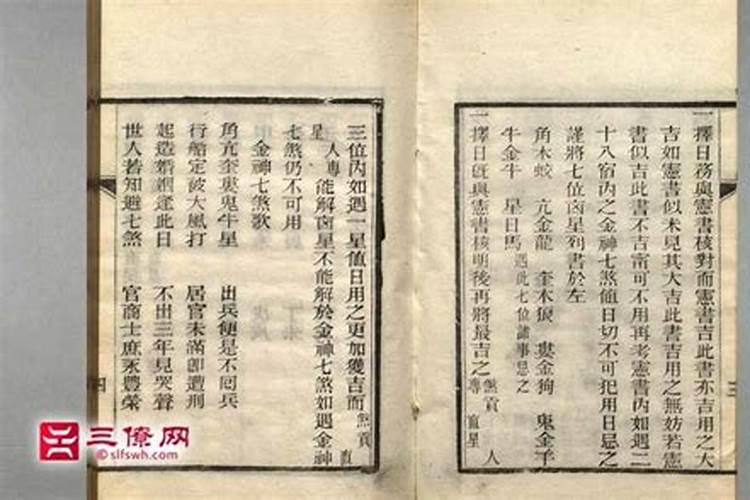 一擇日務與憲書核對而憲書吉此書亦吉用之大
吉如憲書似未見其大吉此書吉用之無妨若憲
書似吉此書不吉甯可不用再考憲書內如遇二
十八宿內之金神七煞值日切不可犯用日忌之
謹將七位凶星列書於左
角木蛟 亢金龍 奎木狼 婁金狗 鬼金羊
牛金牛 星日馬 遇此七位諸事忌之
一擇日既與憲書核明後再將最吉之煞貢 直星 人專
三位內如遇一星值日用之更加獲吉而煞貢 直
星 人專 能解凶星不能解於金神七煞如遇金神
七煞仍不可用
金神七煞歌
角亢奎婁鬼牛星 出兵便是不回兵
行船定被大風打 居官未滿卽遭刑
起造婚姻逢此日 不出三年見哭聲
世人若知避七煞 官商士庶永豐榮
三
四
三僚网
©slfswh.com